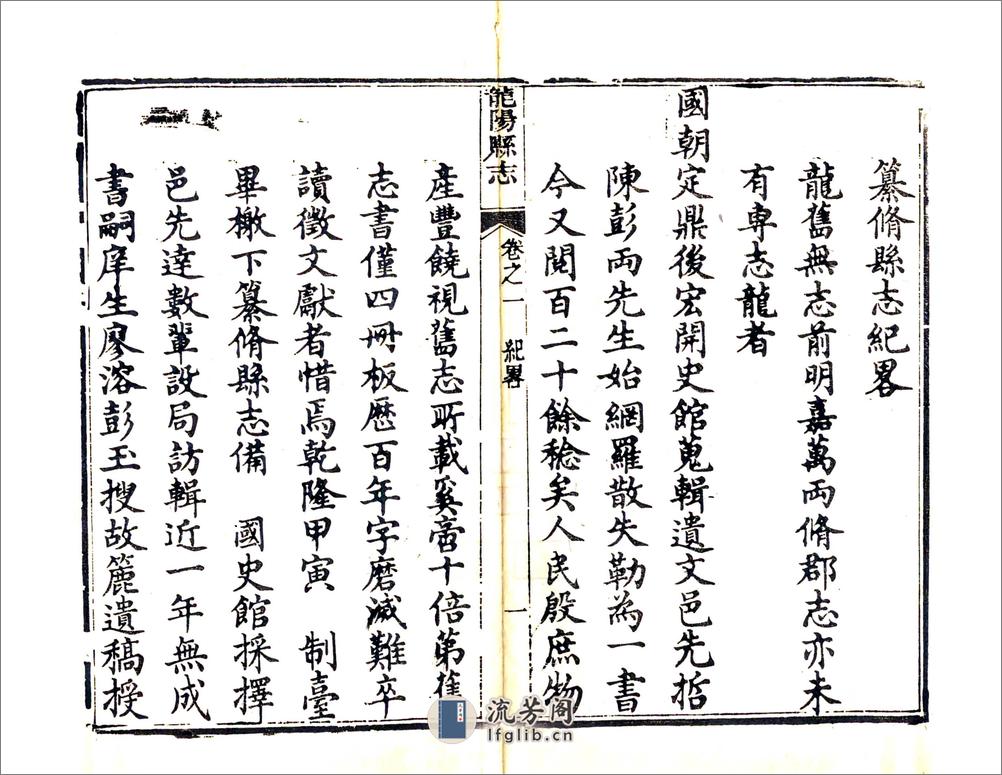 纂脩縣志紀畧
龍舊無志前明嘉萬两脩郡志亦未
有専志龍者
國朝定鼎後宏開史館蒐輯遺文邑先哲
陳彭两先生始網羅散失勒為一書
今又閱百二十餘稔矣人民殷庶物
龍陽縣志
卷之一
紀畧
一
產豐饒視舊志所載奚啻十倍第舊
志書僅四冊板歷百年字磨滅難卒
讀徵文獻者惜焉乾隆甲寅 制臺
畢檄下纂脩縣志備 國史館採擇
邑先達數輩設局訪輯近一年無成
書嗣庠生廖溶彭玉搜故簏遺稿授
流芳阁
lfglib.cn